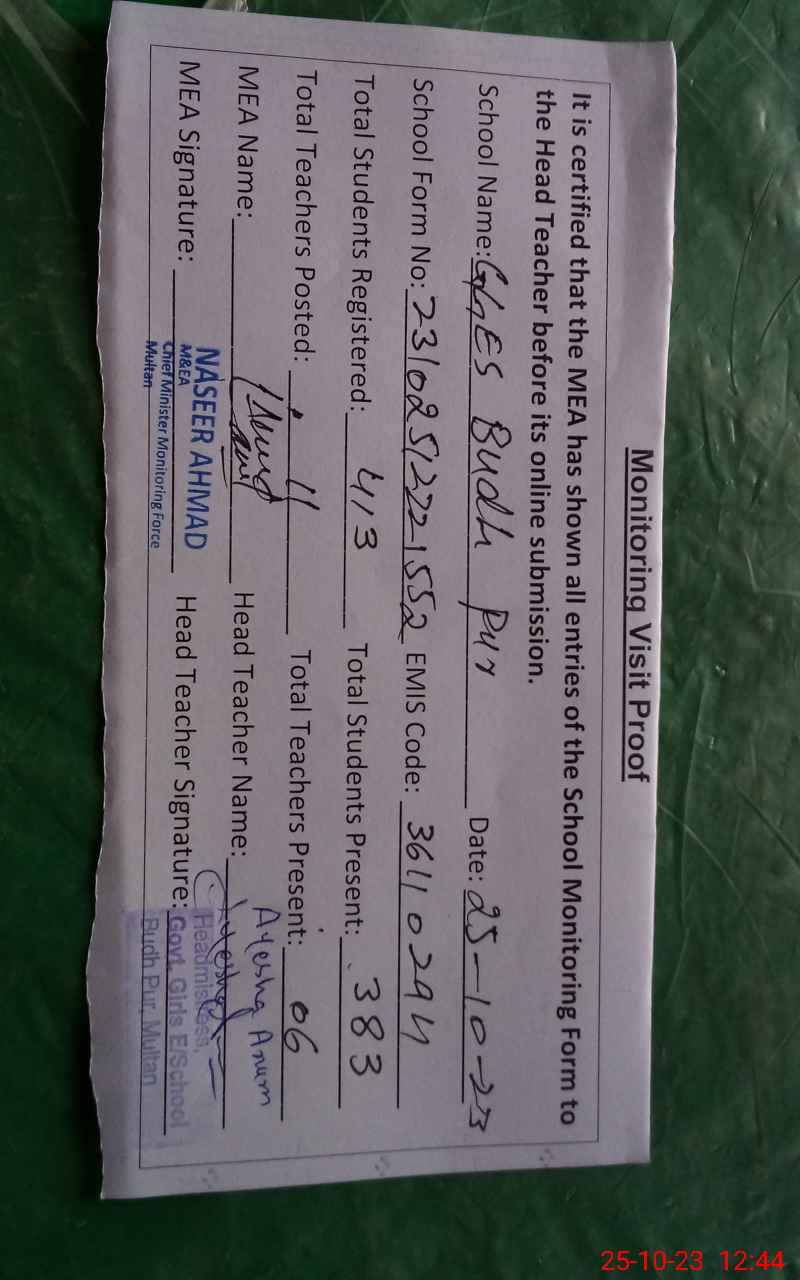 Monitoring Visit Proof
It is certified that the MEA has shown all entries of the School Monitoring Form to
the Head Teacher before its online submission.
School Name: GGES Budh Pur Date: 25-10-23
School Form No: 23102512221552 EMIS Code: 36110294
Total Students Registered: 413 Total Students Present: 383
Total Teachers Posted: 11 Total Teachers Present: 06
MEA Name: Head Teacher Name: Ayesha Anum
MEA Signature: Head Teacher Signature:
NASEER AHMAD
M&EA
Chief Minister Monitoring Force
Multan
Headmistress,
Govt. Girls E/School
Budh Pur, Multan
25-10-23 12:44